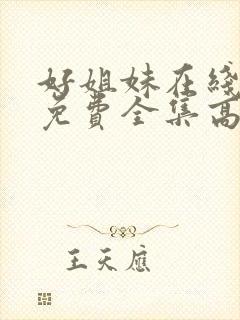 好姐妹在线
免费全集高
王天应